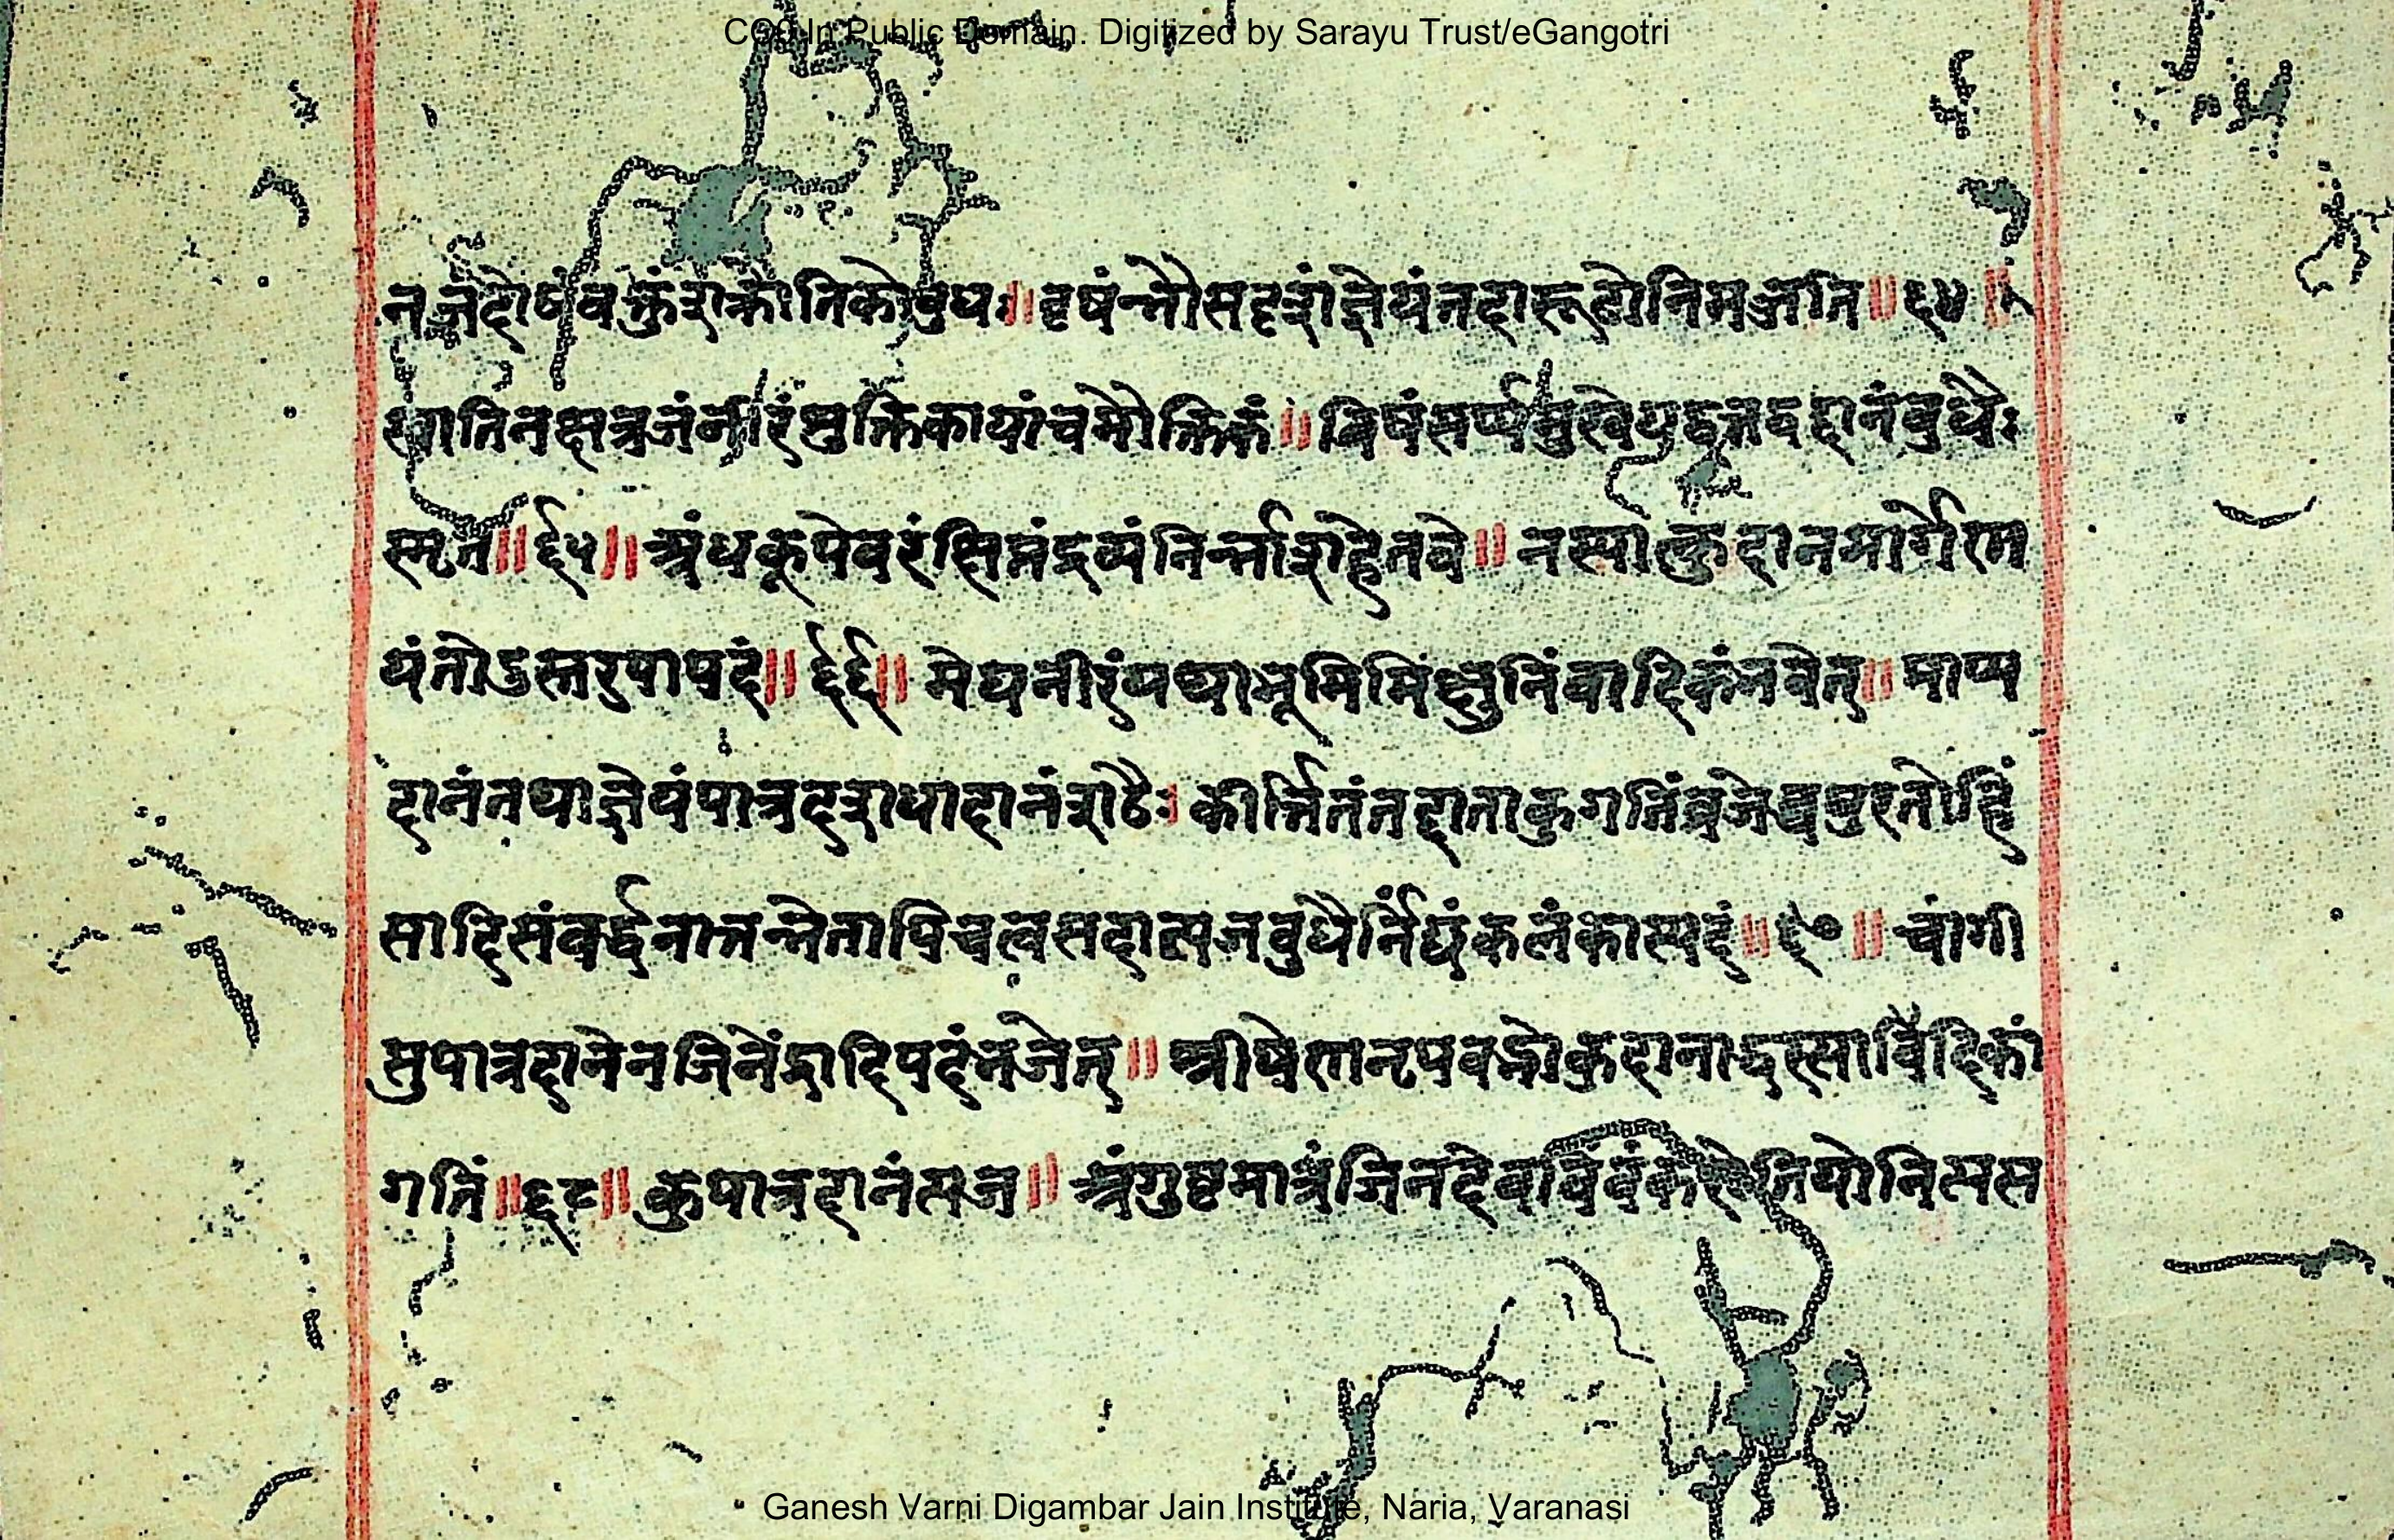 CC0 In Public Domain. Digitized by Sarayu Trust/eGangotri
तद्दोषंवक्तुंशक्नोतिकोबुधः॥दृषन्नौसदृशंज्ञेयंतदारूढोनिमज्जति॥६४॥
स्वातिनक्षत्रजंनीरंसुक्तिकायांचमौक्तिकं॥विषंसर्प्पमुखेयद्वत्तवद्दानंबुधैः
स्मृतं॥६५॥अंधकूपेवरंक्षिप्तंद्रव्यंनिर्न्नाशहेतवे॥नस्यात्कुदानमार्गेण
यंतोऽस्तरुपापदं॥६६॥मेघनीरंयथाभूमिमिंक्षुनिंबादिकंनवेत्॥प्राप्य
दानंतथाज्ञेयंपात्रदशधादानंशठैःकीर्त्तितंतद्दाताकुगतिंव्रजेच्चपुरतोहिं
सादिसंवर्द्धनात्तन्नेतापिचत्वसदात्यजबुधैर्निंद्यंकलंकास्पदं॥६७॥चांगी
सुपात्रदानेनजिनेंद्रादिपदंनजेत्॥श्रीषेणनृपवद्भोक्रदानाद्धस्सार्वैदिकां
गतिं॥६८॥कुपात्रदानंत्यज॥अंगुष्टमात्रंजिनदेवविंबंकरोतियोनित्यस
Ganesh Varni Digambar Jain Institute, Naria, Varanasi